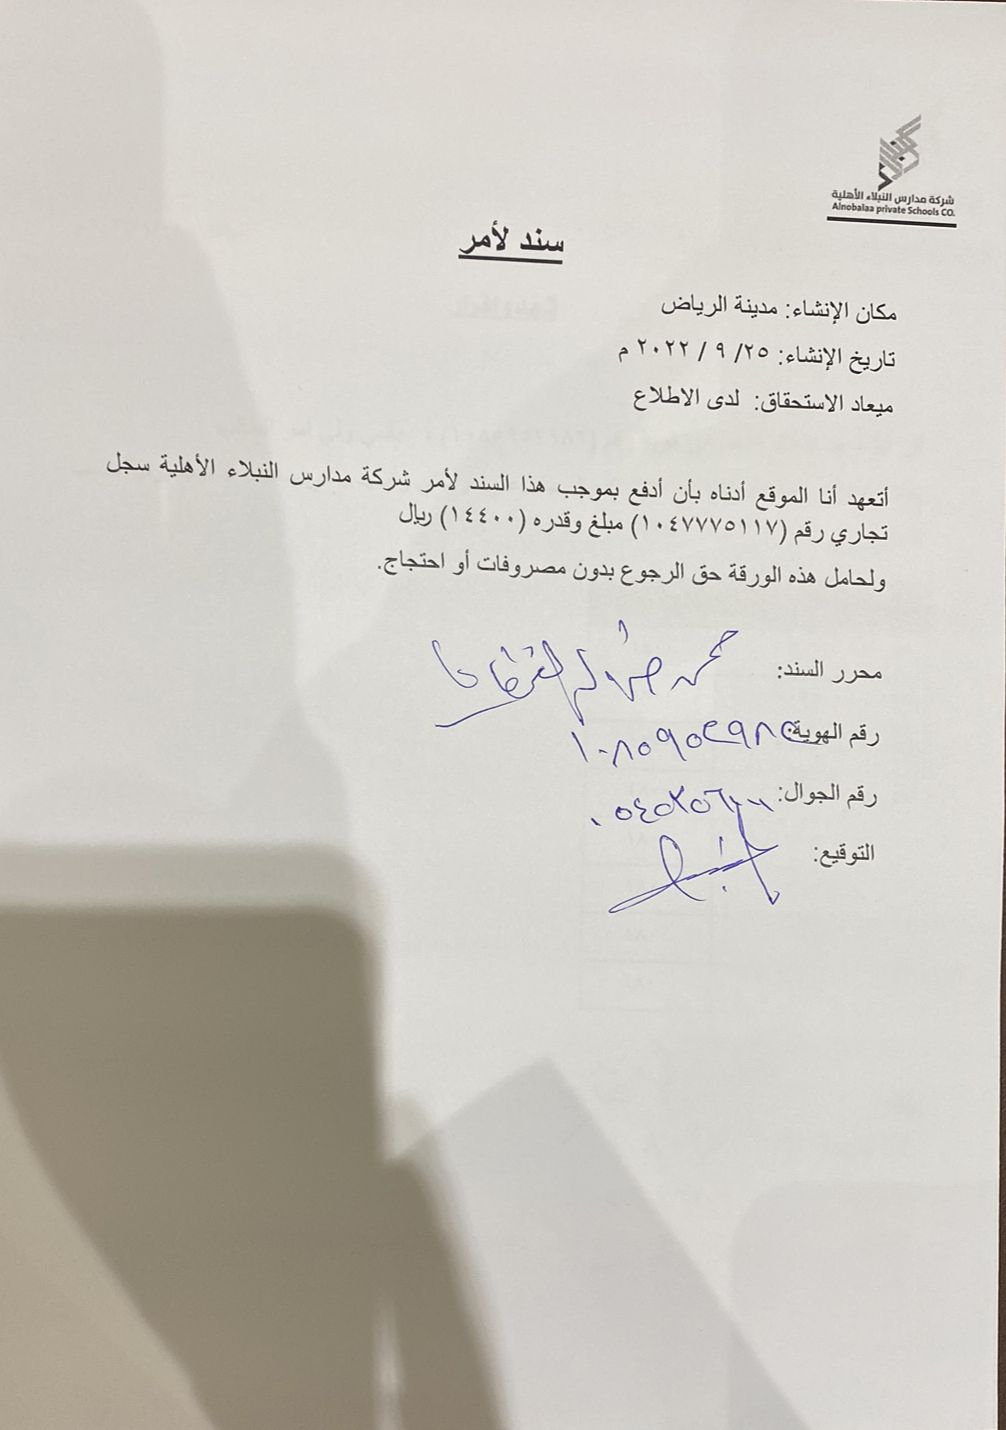 شركة مدارس النبلاء الأهلية
Alnobalaa private Schools CO.
سند لأمر
مكان الإنشاء: مدينة الرياض
تاريخ الإنشاء: ٢٥/ ٩ / ٢٠٢٢ م
ميعاد الاستحقاق: لدى الاطلاع
أتعهد أنا الموقع أدناه بأن أدفع بموجب هذا السند لأمر شركة مدارس النبلاء الأهلية سجل
تجاري رقم (١٠٤٧٧٧٥١١٧) مبلغ وقدره (١٤٤٠٠) ريال
ولحامل هذه الورقة حق الرجوع بدون مصروفات أو احتجاج.
محرر السند:
رقم الهوية:
رقم الجوال:
التوقيع: